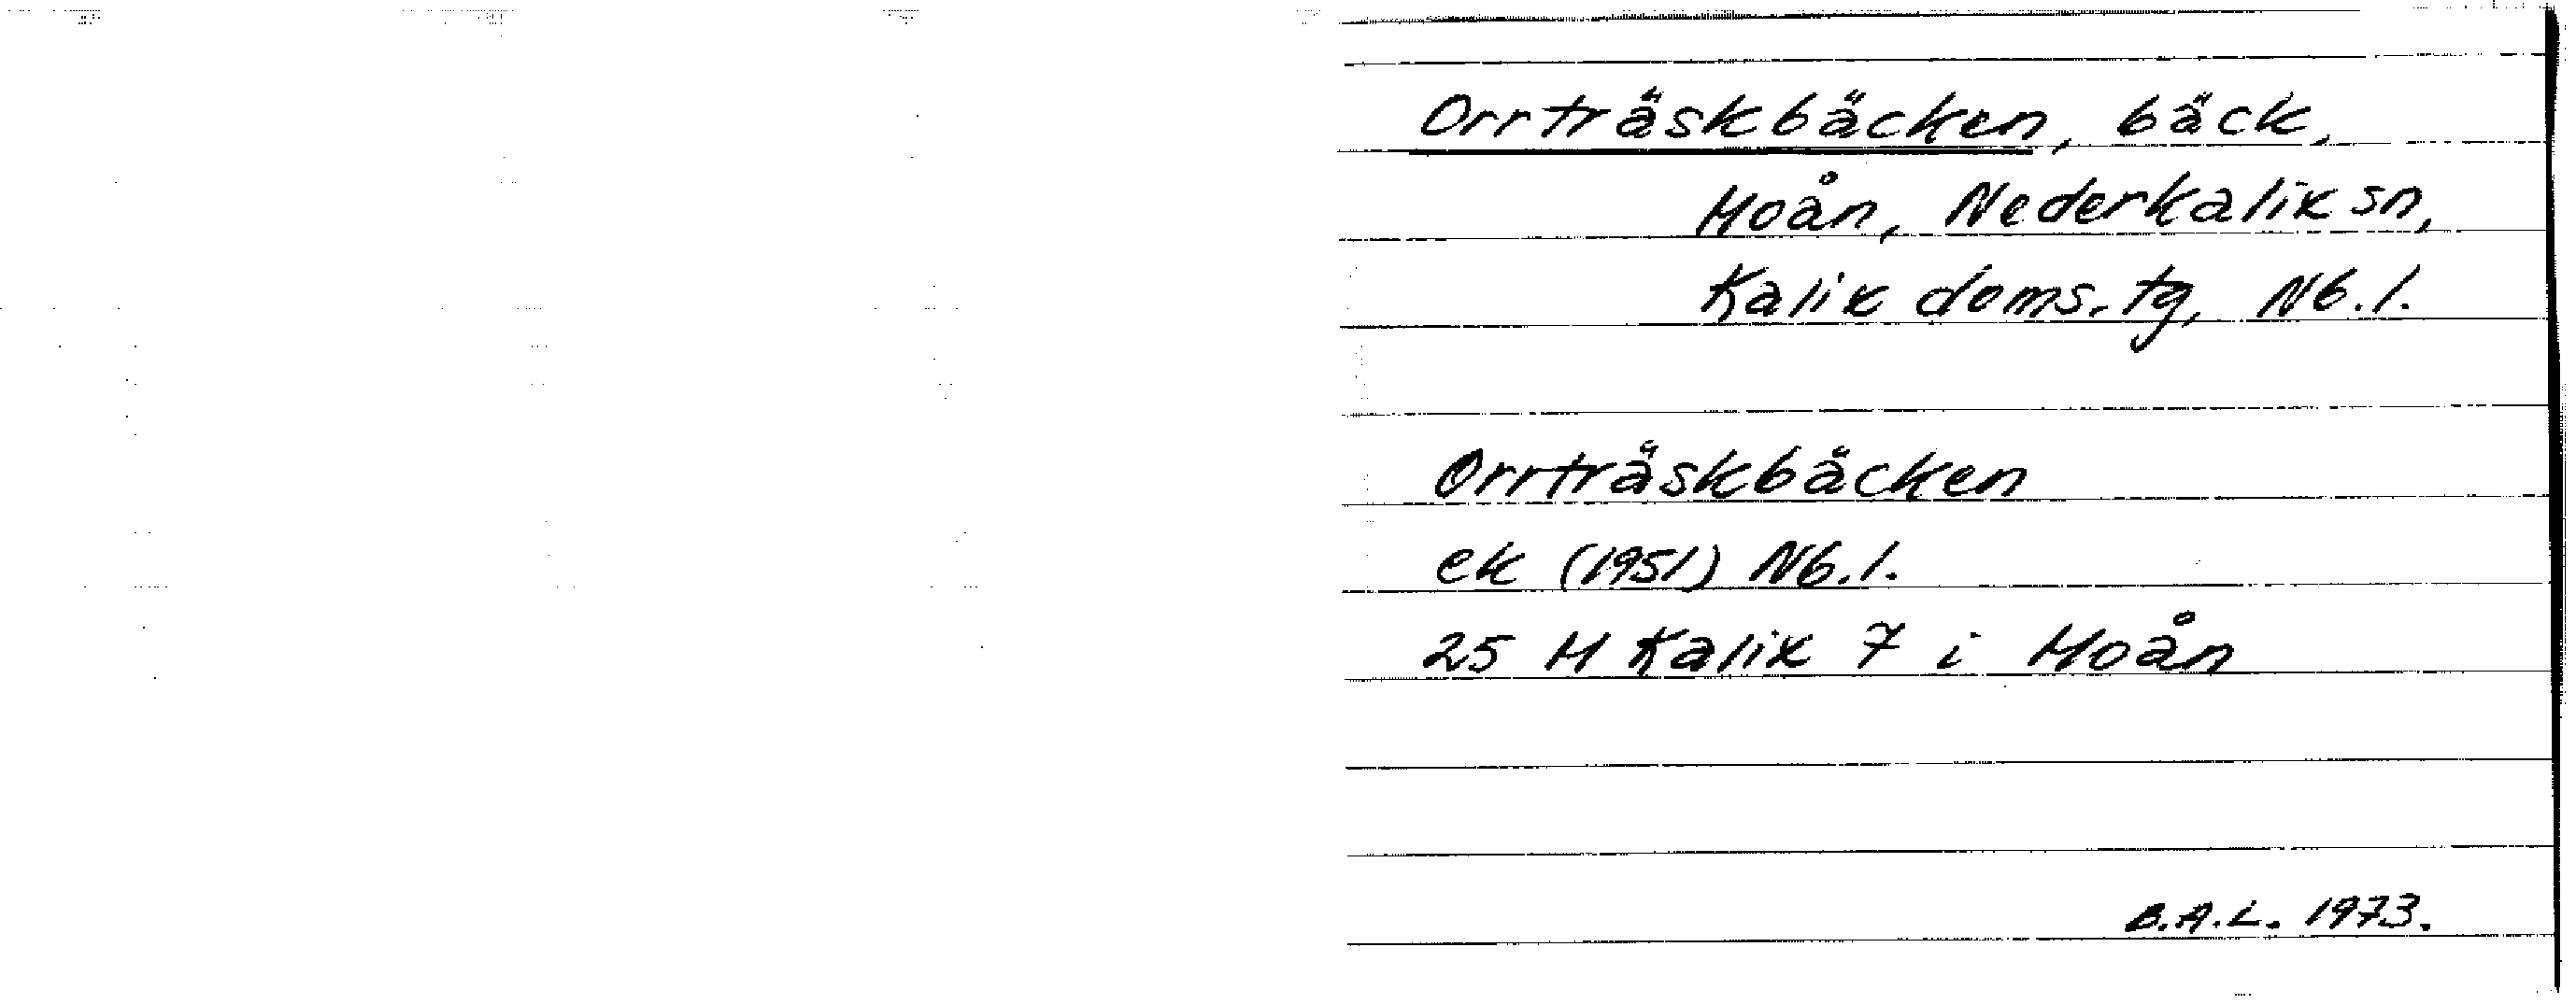 Orrträskbäcken, bäck,
Moån, Nederkalix sn,
Kalix doms. tg, Nb.l.
Orrträskbäcken
ek (1951) Nb.l.
25 M Kalix 7 i Moån
B.A.L. 1973.